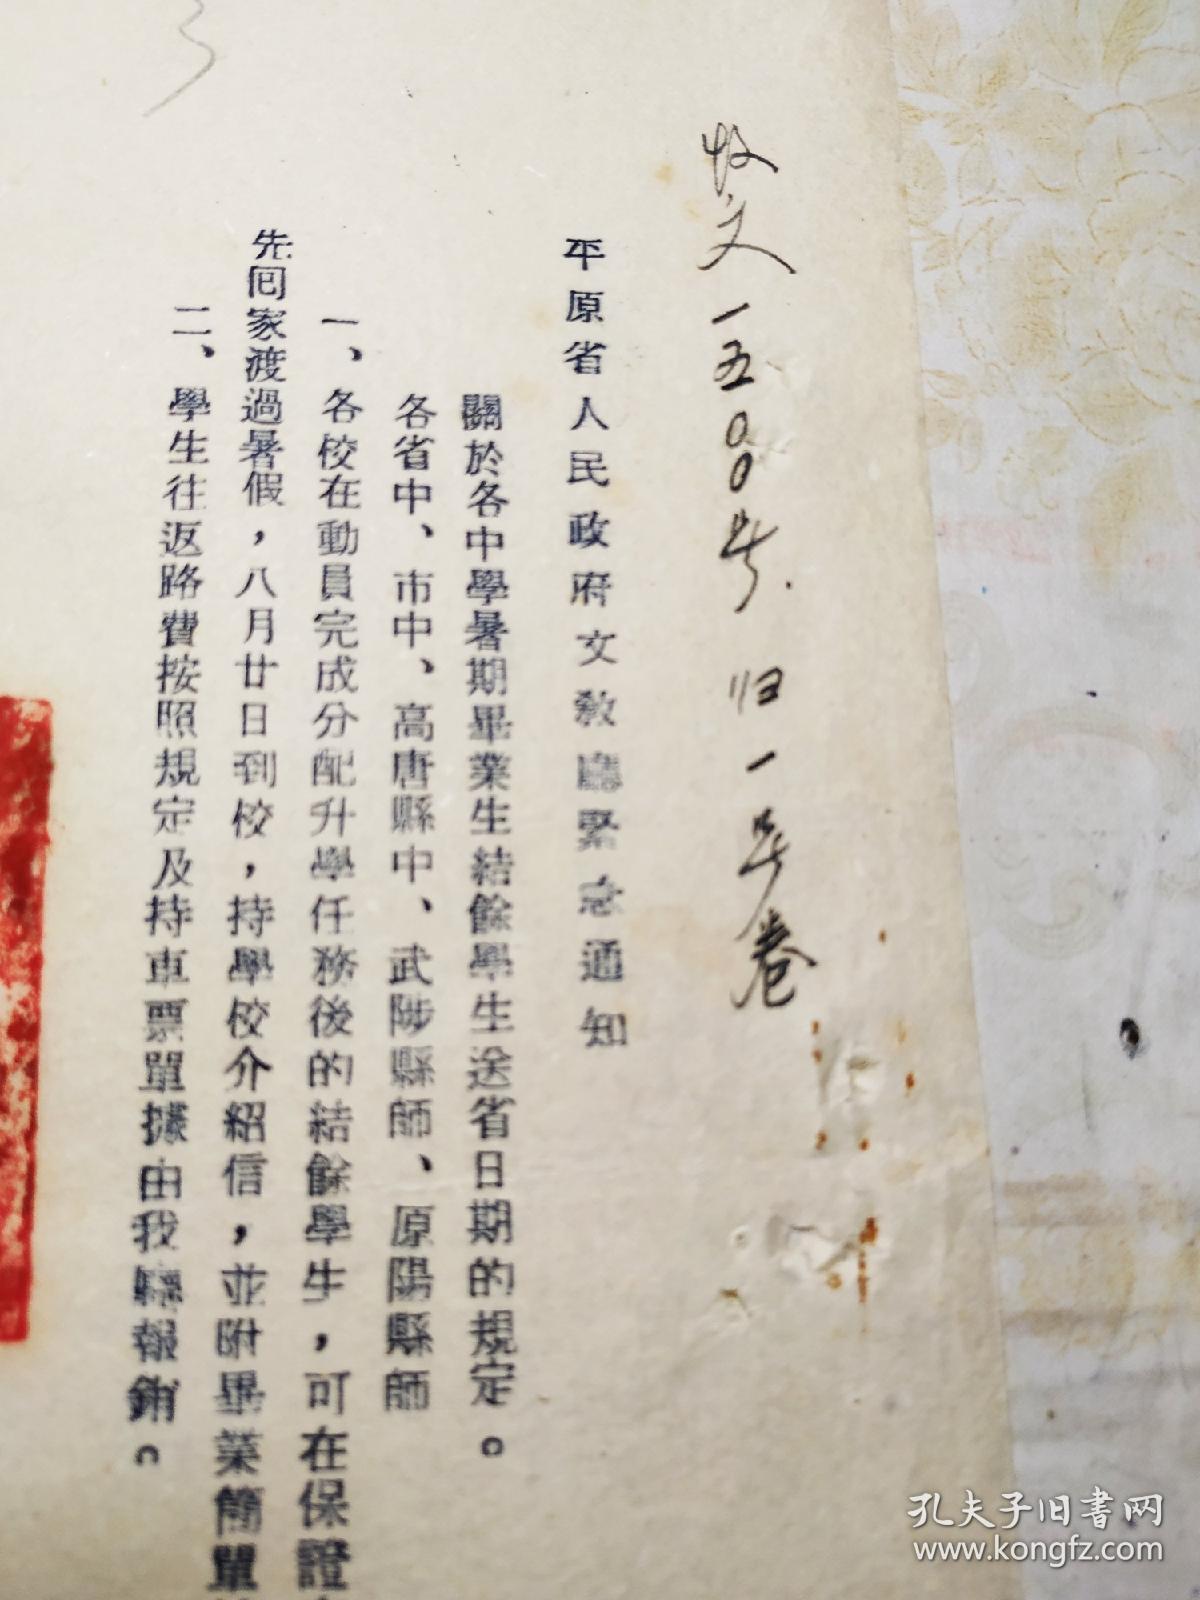 收文一五00号.归一号卷
平原省人民政府文教廳緊急通知
關於各中學暑期畢業生結餘學生送省日期的規定。
各省中、市中、高唐縣中、武陟縣師、原陽縣師
一、各校在動員完成分配升學任務後的結餘學生，可在保證
先回家渡過暑假，八月廿日到校，持學校介紹信，並附畢業簡單
二、學生往返路費按照規定及持車票單據由我廳報銷。
孔夫子旧书网
www.kongfz.com